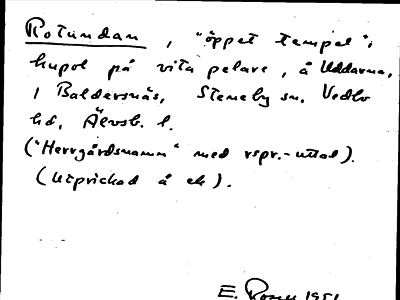 Rotundan, "öppet tempel" i
kupol på vita pelare, å Uddarna,
i Baldersnäs, Steneby sn. Vedbo
hd, Älvsb. l.
("Herrgårdsnamn" med rspr.-uttal).
(Utprickad å ek).
E. Rosell 1951